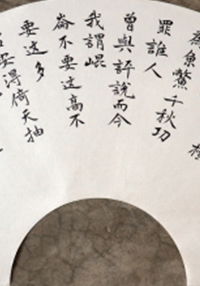 為魚鱉千秋功
罪誰人
曾與評說而今
我謂崐
崙不要這高不
要這多
安得倚天抽